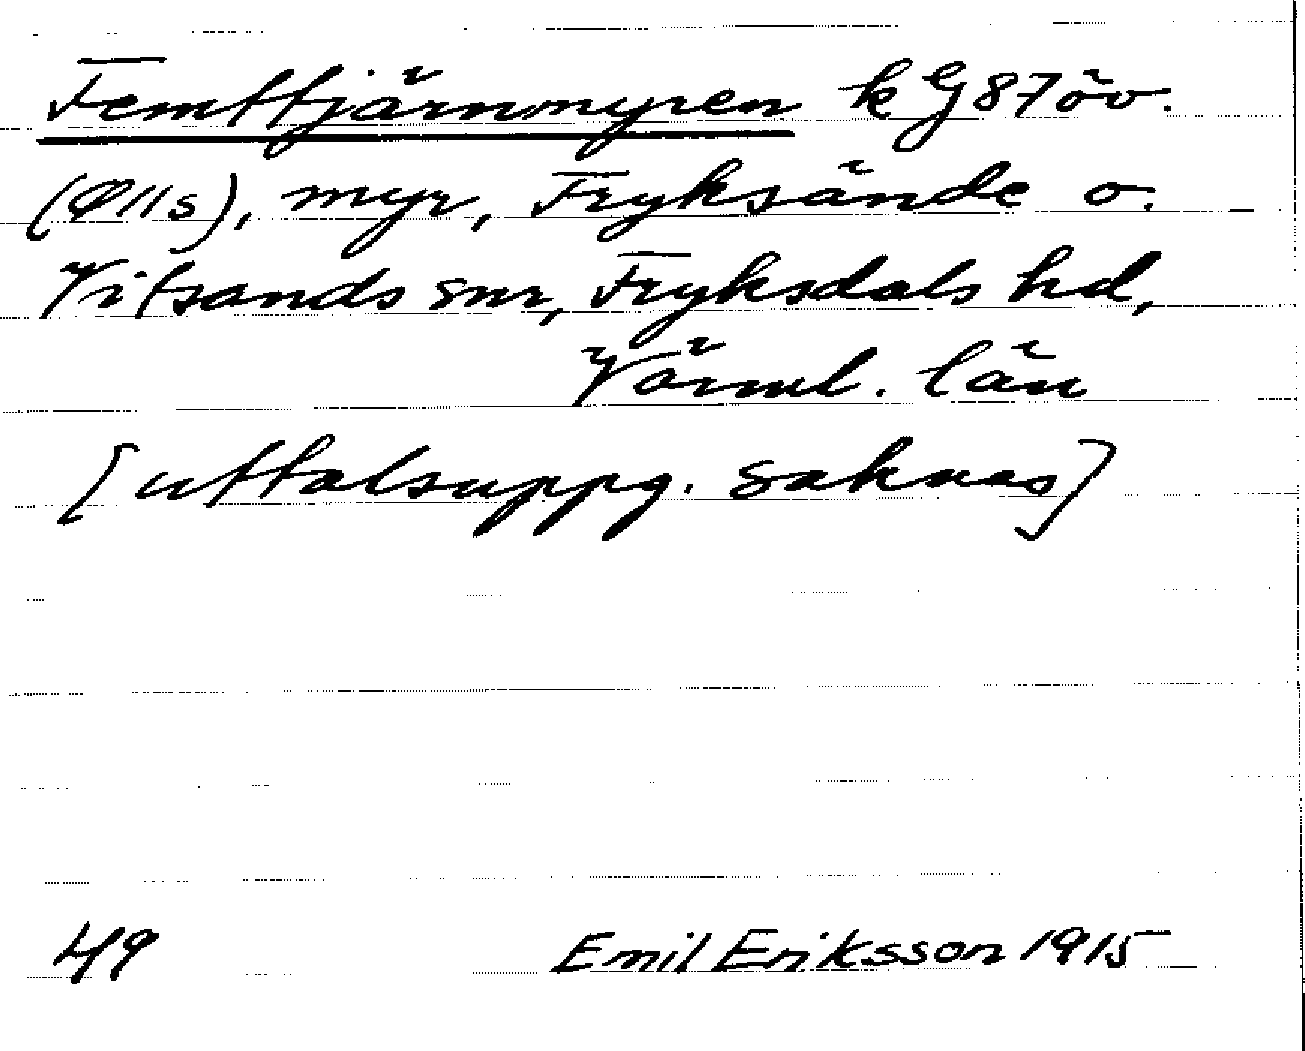 Femttjärnmyren k G 87 öv.
(Ø11s), myr, Fryksände o.
Vitsands snr, Fryksdals hd,
Värml. län
[uttalsuppg. saknas]
49 Emil Eriksson 1915